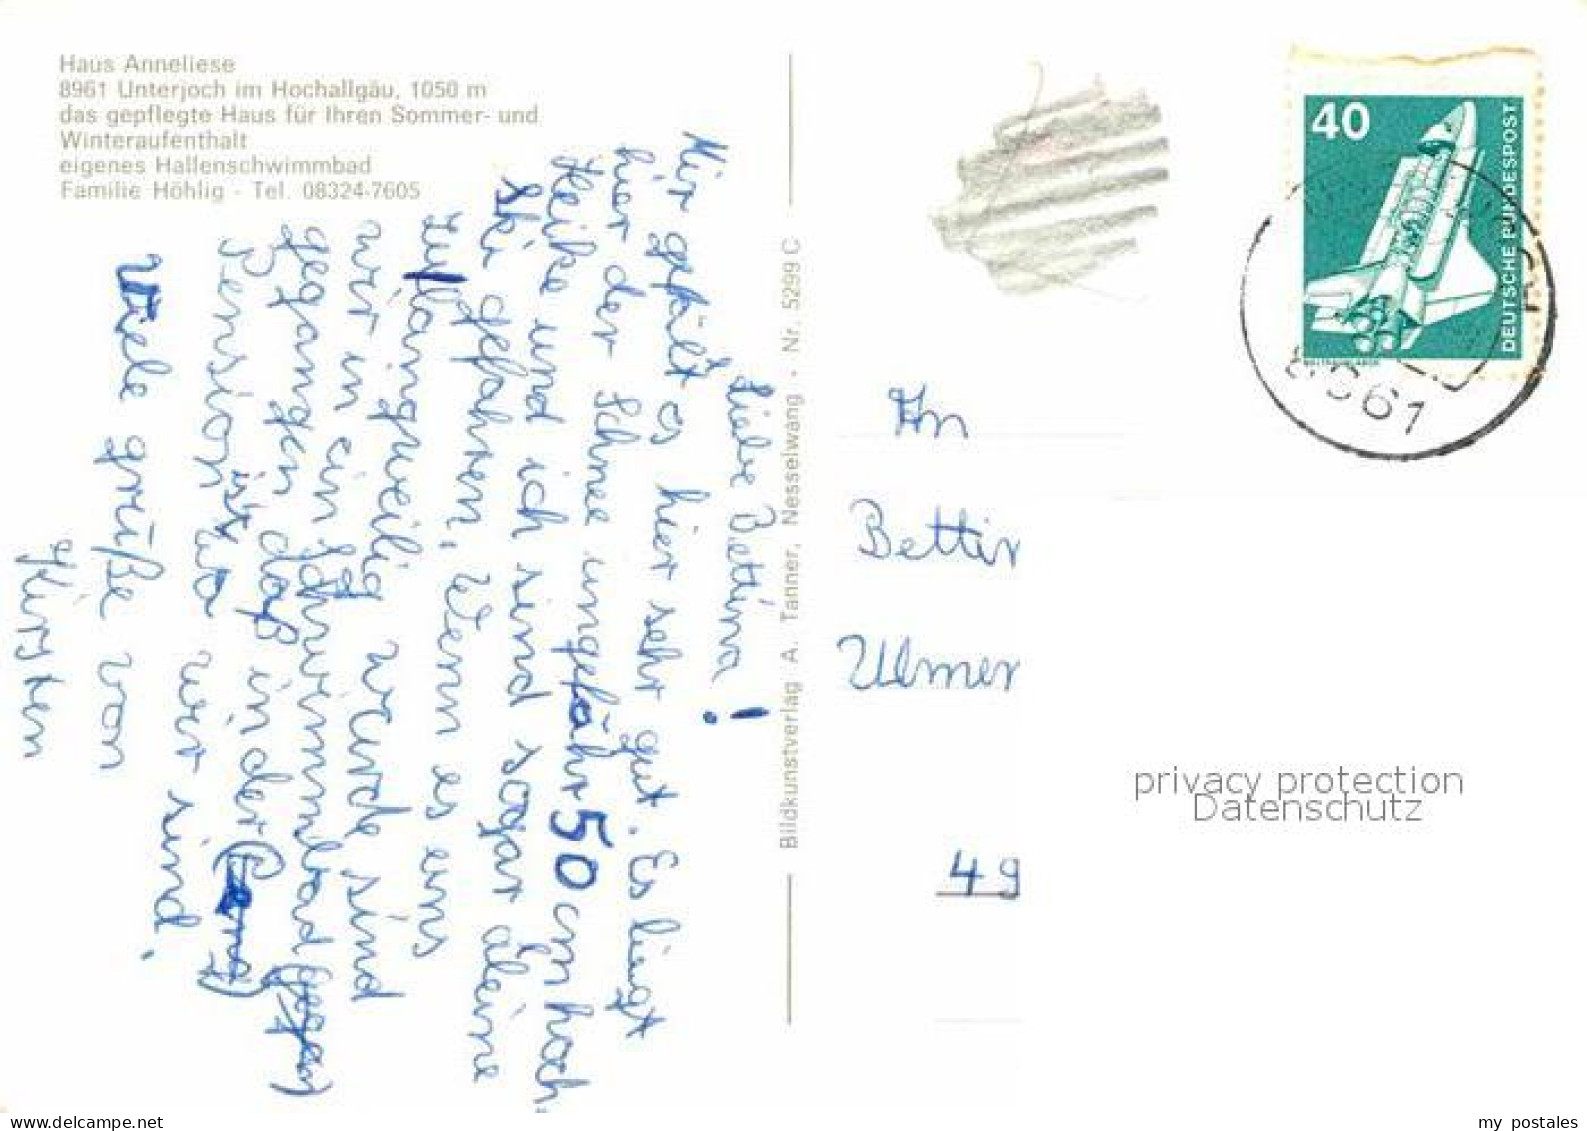 Haus Anneliese
8961 Unterjoch im Hochallgäu, 1050 m
das gepflegte Haus für Ihren Sommer- und
Winteraufenthalt
eigenes Hallenschwimmbad
Familie Höhlig - Tel. 08324-7605
Liebe Bettina!
Mir gefällt es hier sehr gut. Es liegt
hier der Schnee ungefähr 50 cm hoch.
Heike und ich sind sogar aleine
Ski gefahren. Wenn es uns
zu langweilig wurde sind
wir in ein Schwimmbad
gegangen daß in der
Pension ist wo wir sind.
Viele grüße von
Kirsten
Bildkunstverlag A. Tanner, Nesselwang · Nr. 5299 C
40
DEUTSCHE BUNDESPOST
8961
An
Bettin
Ulmer
49
privacy protection
Datenschutz
www.delcampe.net
my postales